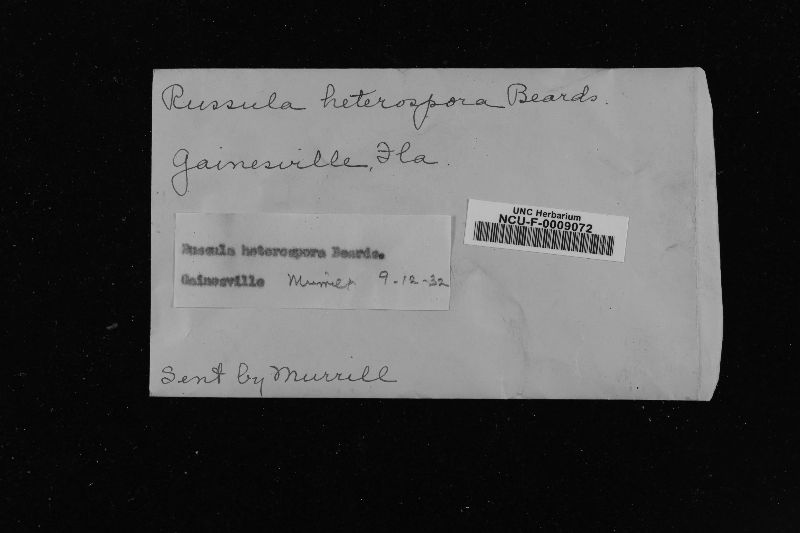 Russula heterospora Beards.
Gainesville, Fla.
UNC Herbarium
NCU-F-0009072
Russula heterospora Beards.
Gainesville Murrill 9-12-32
Sent by Murrill